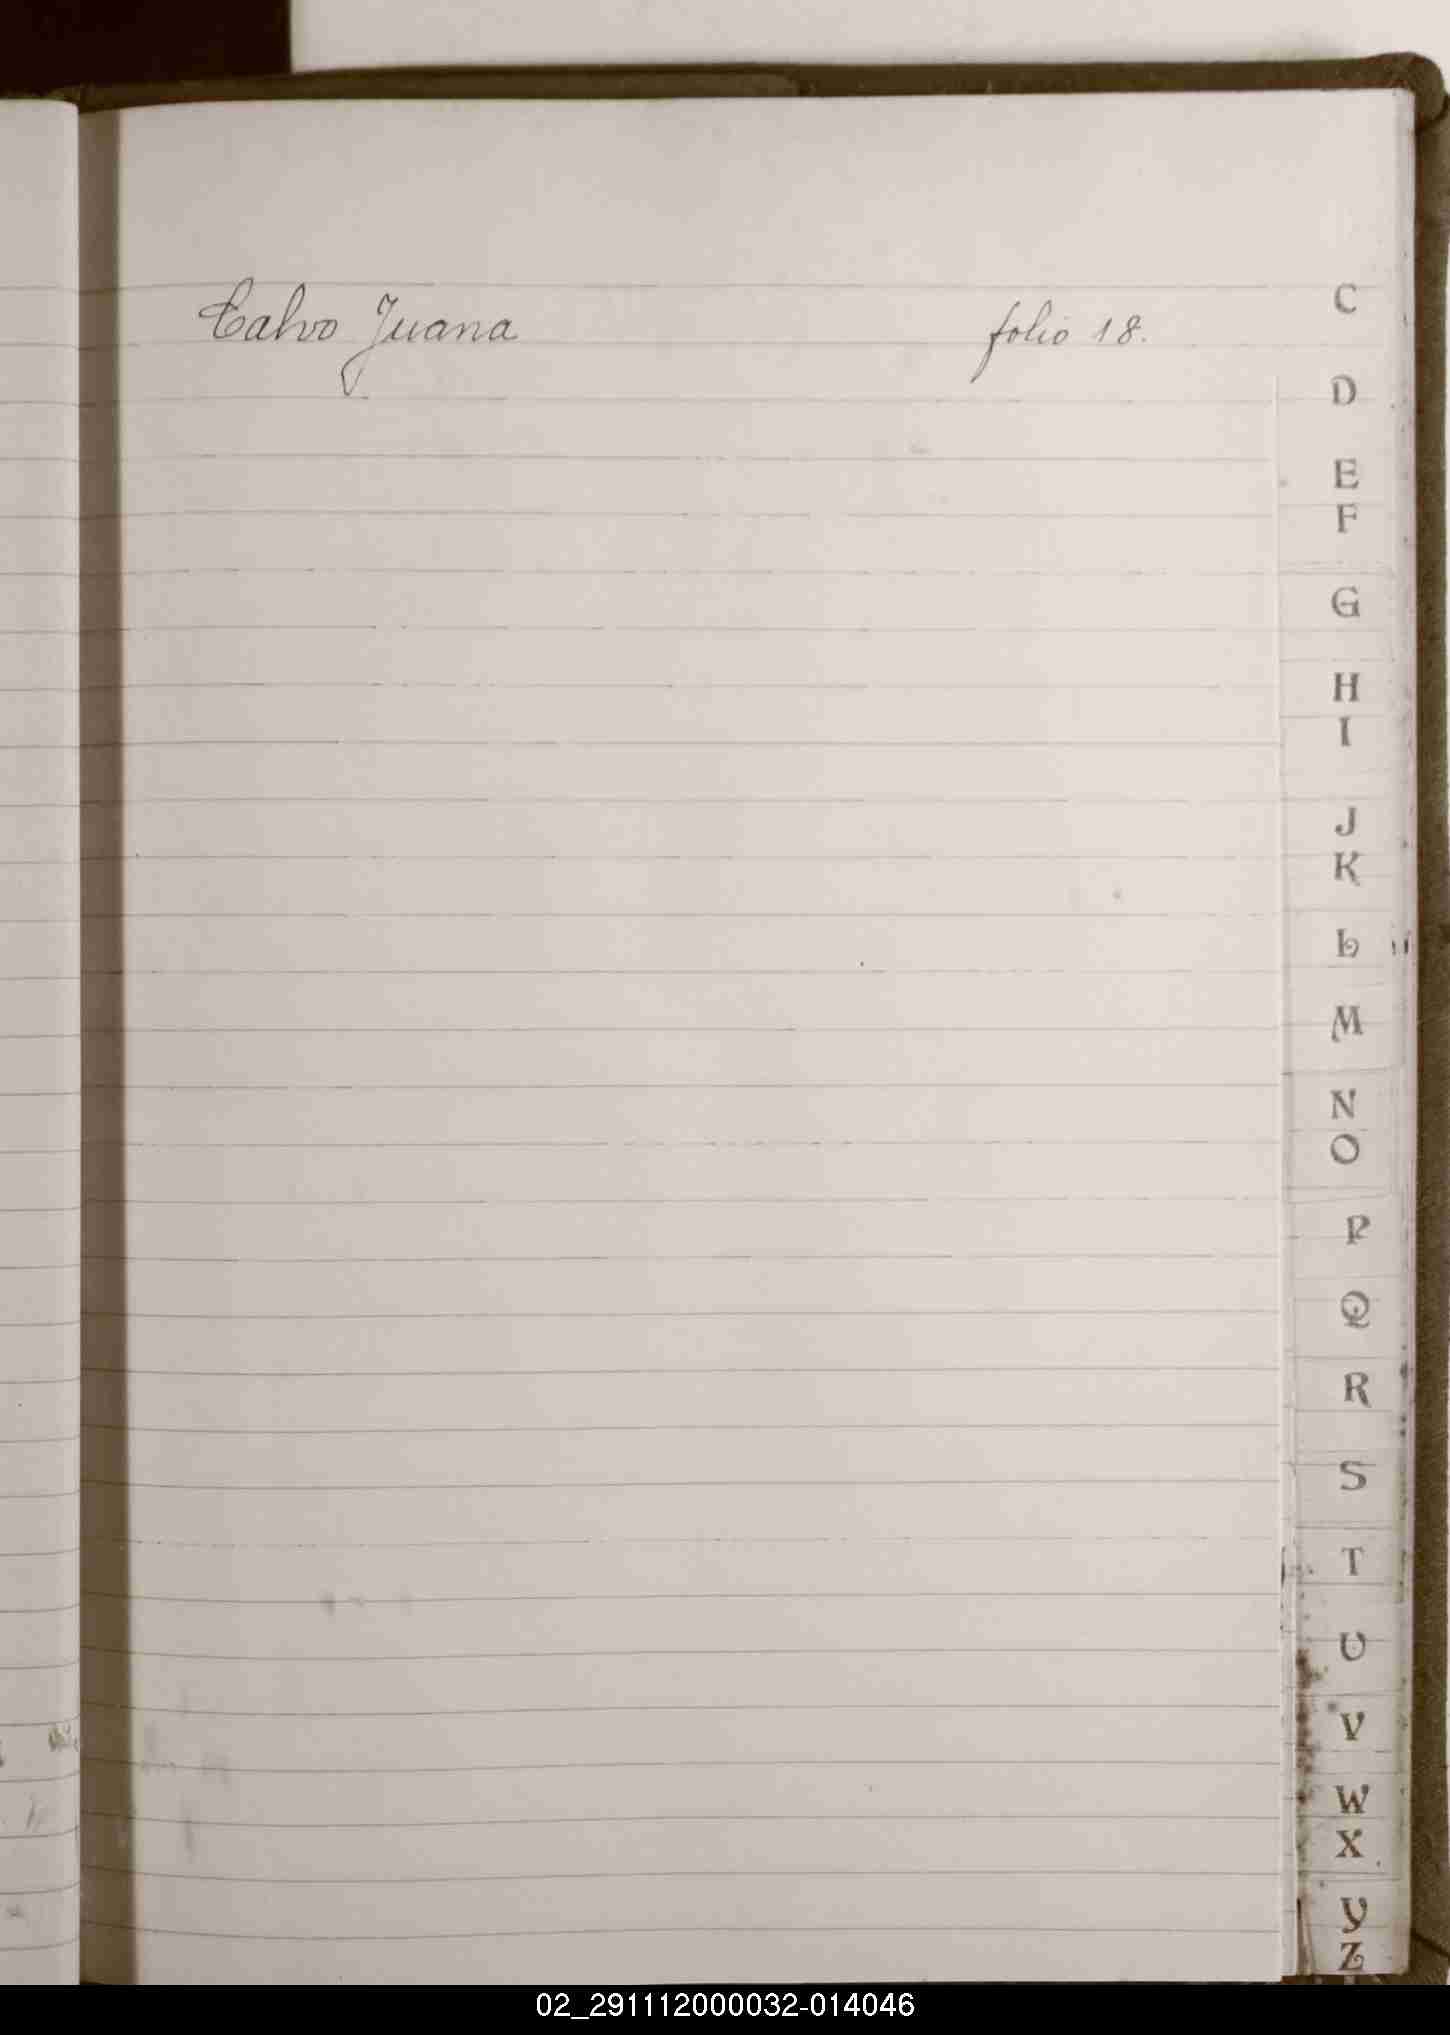 Calvo Juana folio 18.
C
D
E
F
G
H
I
J
K
L
M
N
O
P
Q
R
S
T
U
V
W
X
Y
Z
02_291112000032-014046